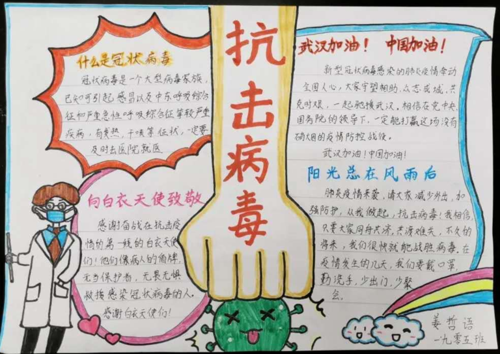 什么是冠状病毒
冠状病毒是一个大型病毒家族,
已知可引起感冒以及中东呼吸综合
征和严重急性呼吸综合征等较严重
疾病,有发热、干咳等症状,一定要
及时去医院就医
向白衣天使致敬
感谢!奋战在抗击疫
情的第一线的白衣天使
们!他们像病人的肩牌,
无当保护者,无畏无惧
救援感染冠状病毒的人。
感谢白衣天使们!
抗击病毒
武汉加油! 中国加油!
新型冠状病毒感染的肺炎疫情牵动
全国人心,大家守望相助,众志成城,共
克时艰,一起驰援武汉,相信在党中央
国务院的领导下,一定能打赢这场没有
硝烟的疫情防控战役。
武汉加油!中国加油!
阳光总在风雨后
肺炎疫情来袭,请大家减少外出,加
强防护,从我做起,抗击病毒!我相信
只要大家同舟共济,共渡难关,不久的
将来,我们很快就能战胜病毒,在
疫情发生的几天,我们要戴口罩,
勤洗手,少出门,少聚
会。
姜哲语
一九零五班